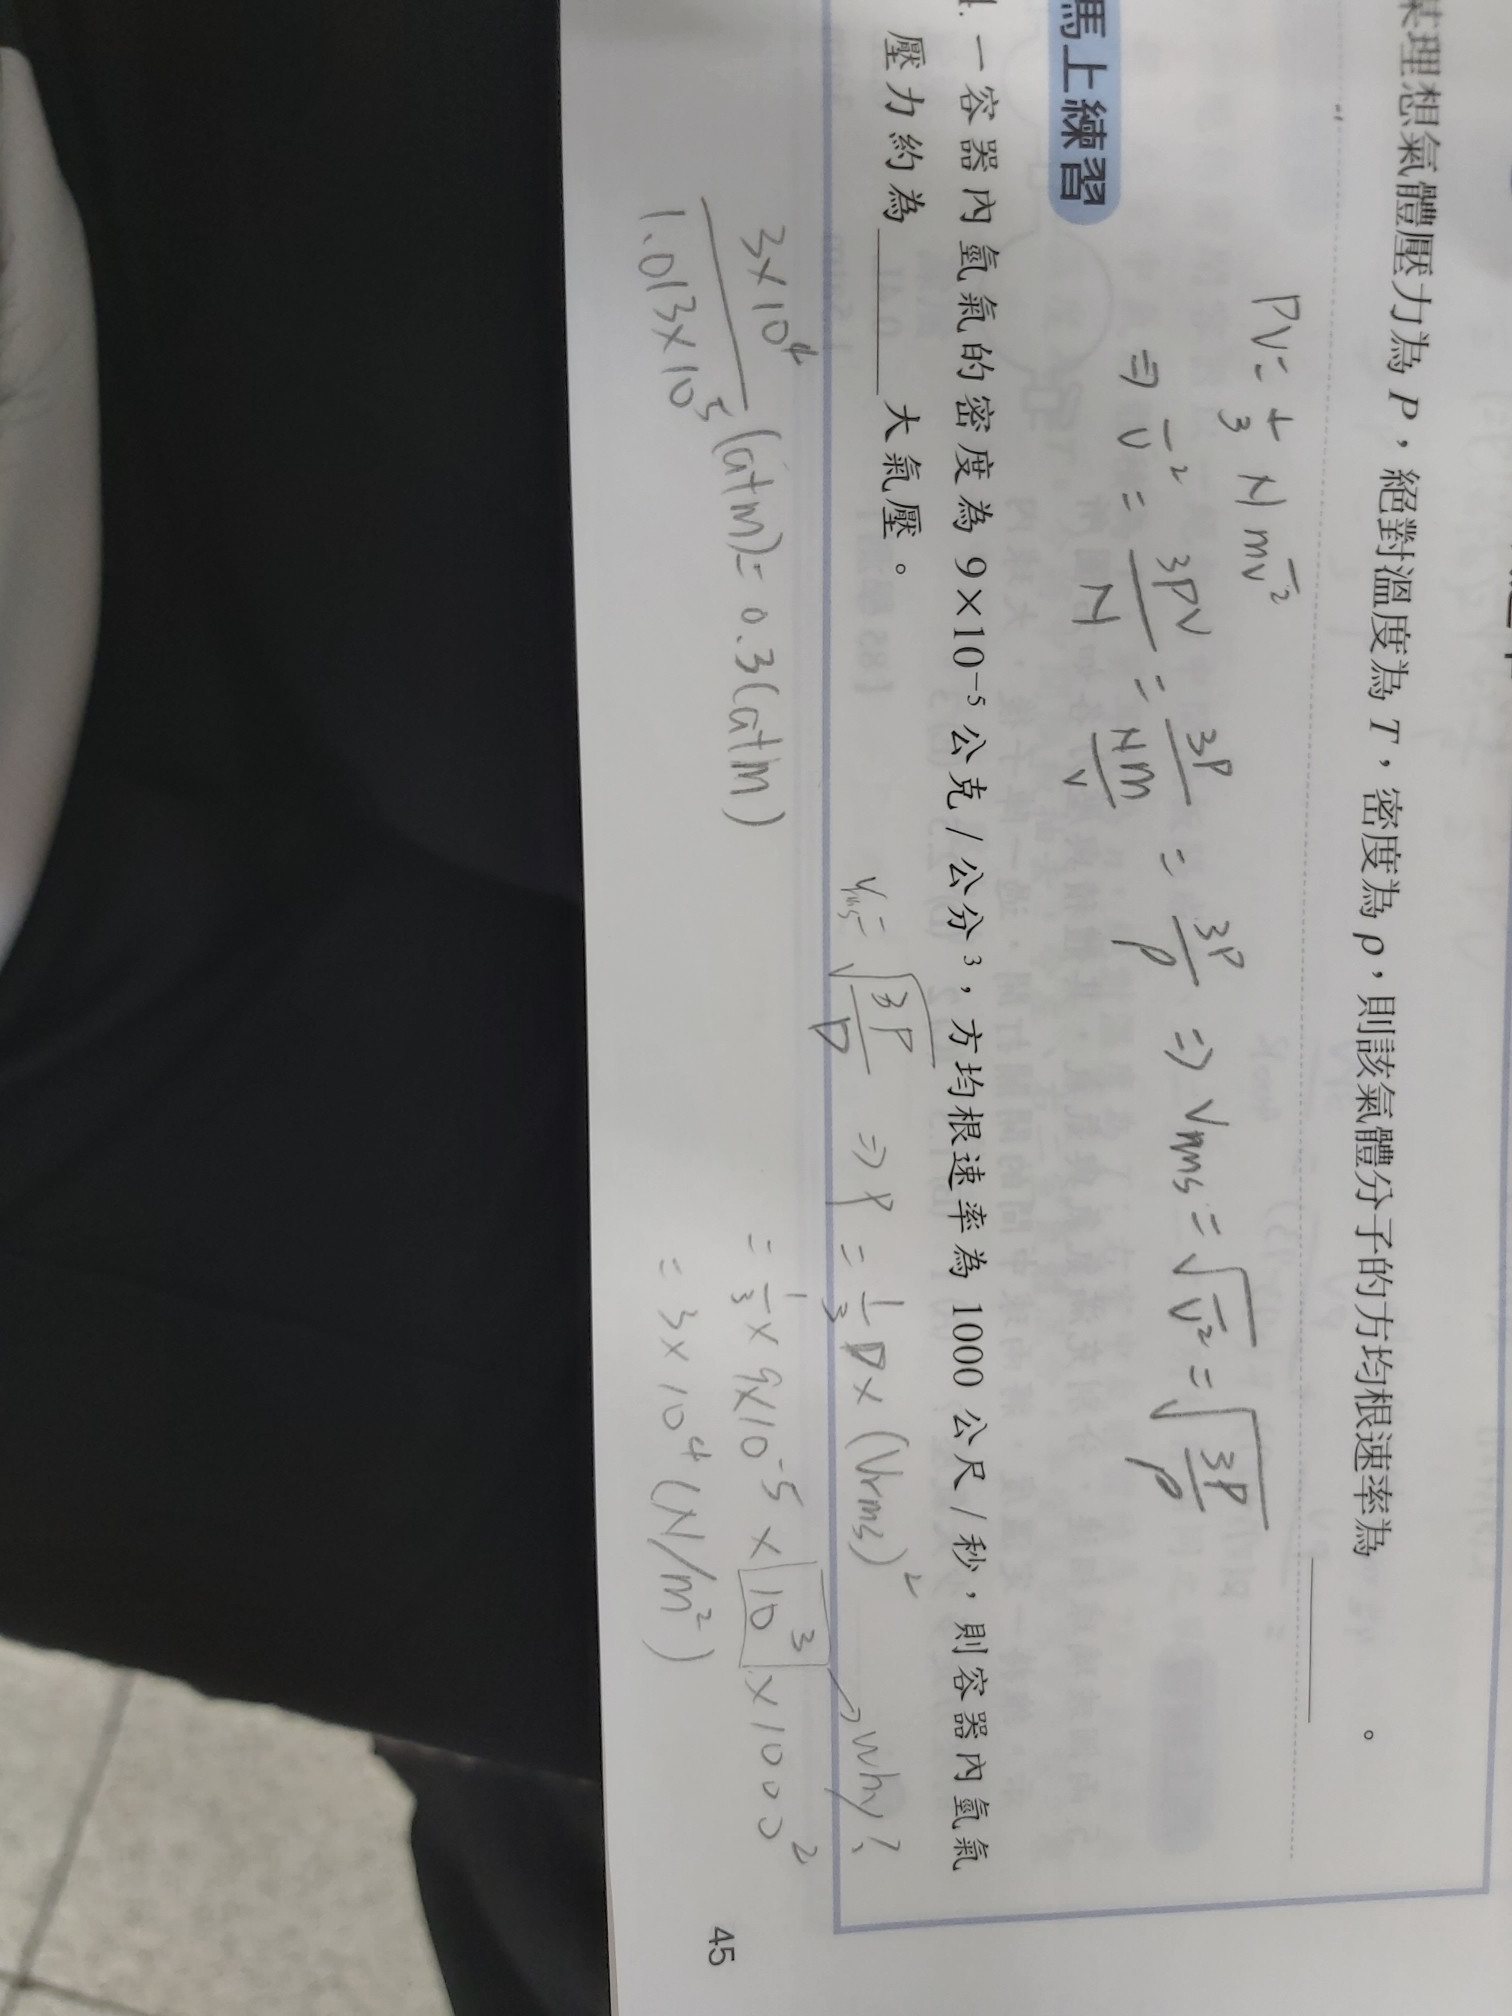 某理想氣體壓力為 P，絕對溫度為 T，密度為 ρ，則該氣體分子的方均根速率為＿＿＿＿。
PV = 1/3 N m v̄²
⇒ v̄² = 3PV/N = 3P/(Nm/V) = 3P/ρ ⇒ Vrms = √v̄² = √(3P/ρ)
馬上練習
一容器內氫氣的密度為 9×10⁻⁵ 公克/公分³，方均根速率為 1000 公尺/秒，則容器內氫氣
壓力約為＿＿＿＿大氣壓。
Vrms = √(3P/D) ⇒ P = 1/3 D × (Vrms)²
= 1/3 × 9×10⁻⁵ × 10³ × 1000²
→ why?
= 3×10⁴ (N/m²)
3×10⁴/1.013×10⁵ (atm) = 0.3 (atm)
45